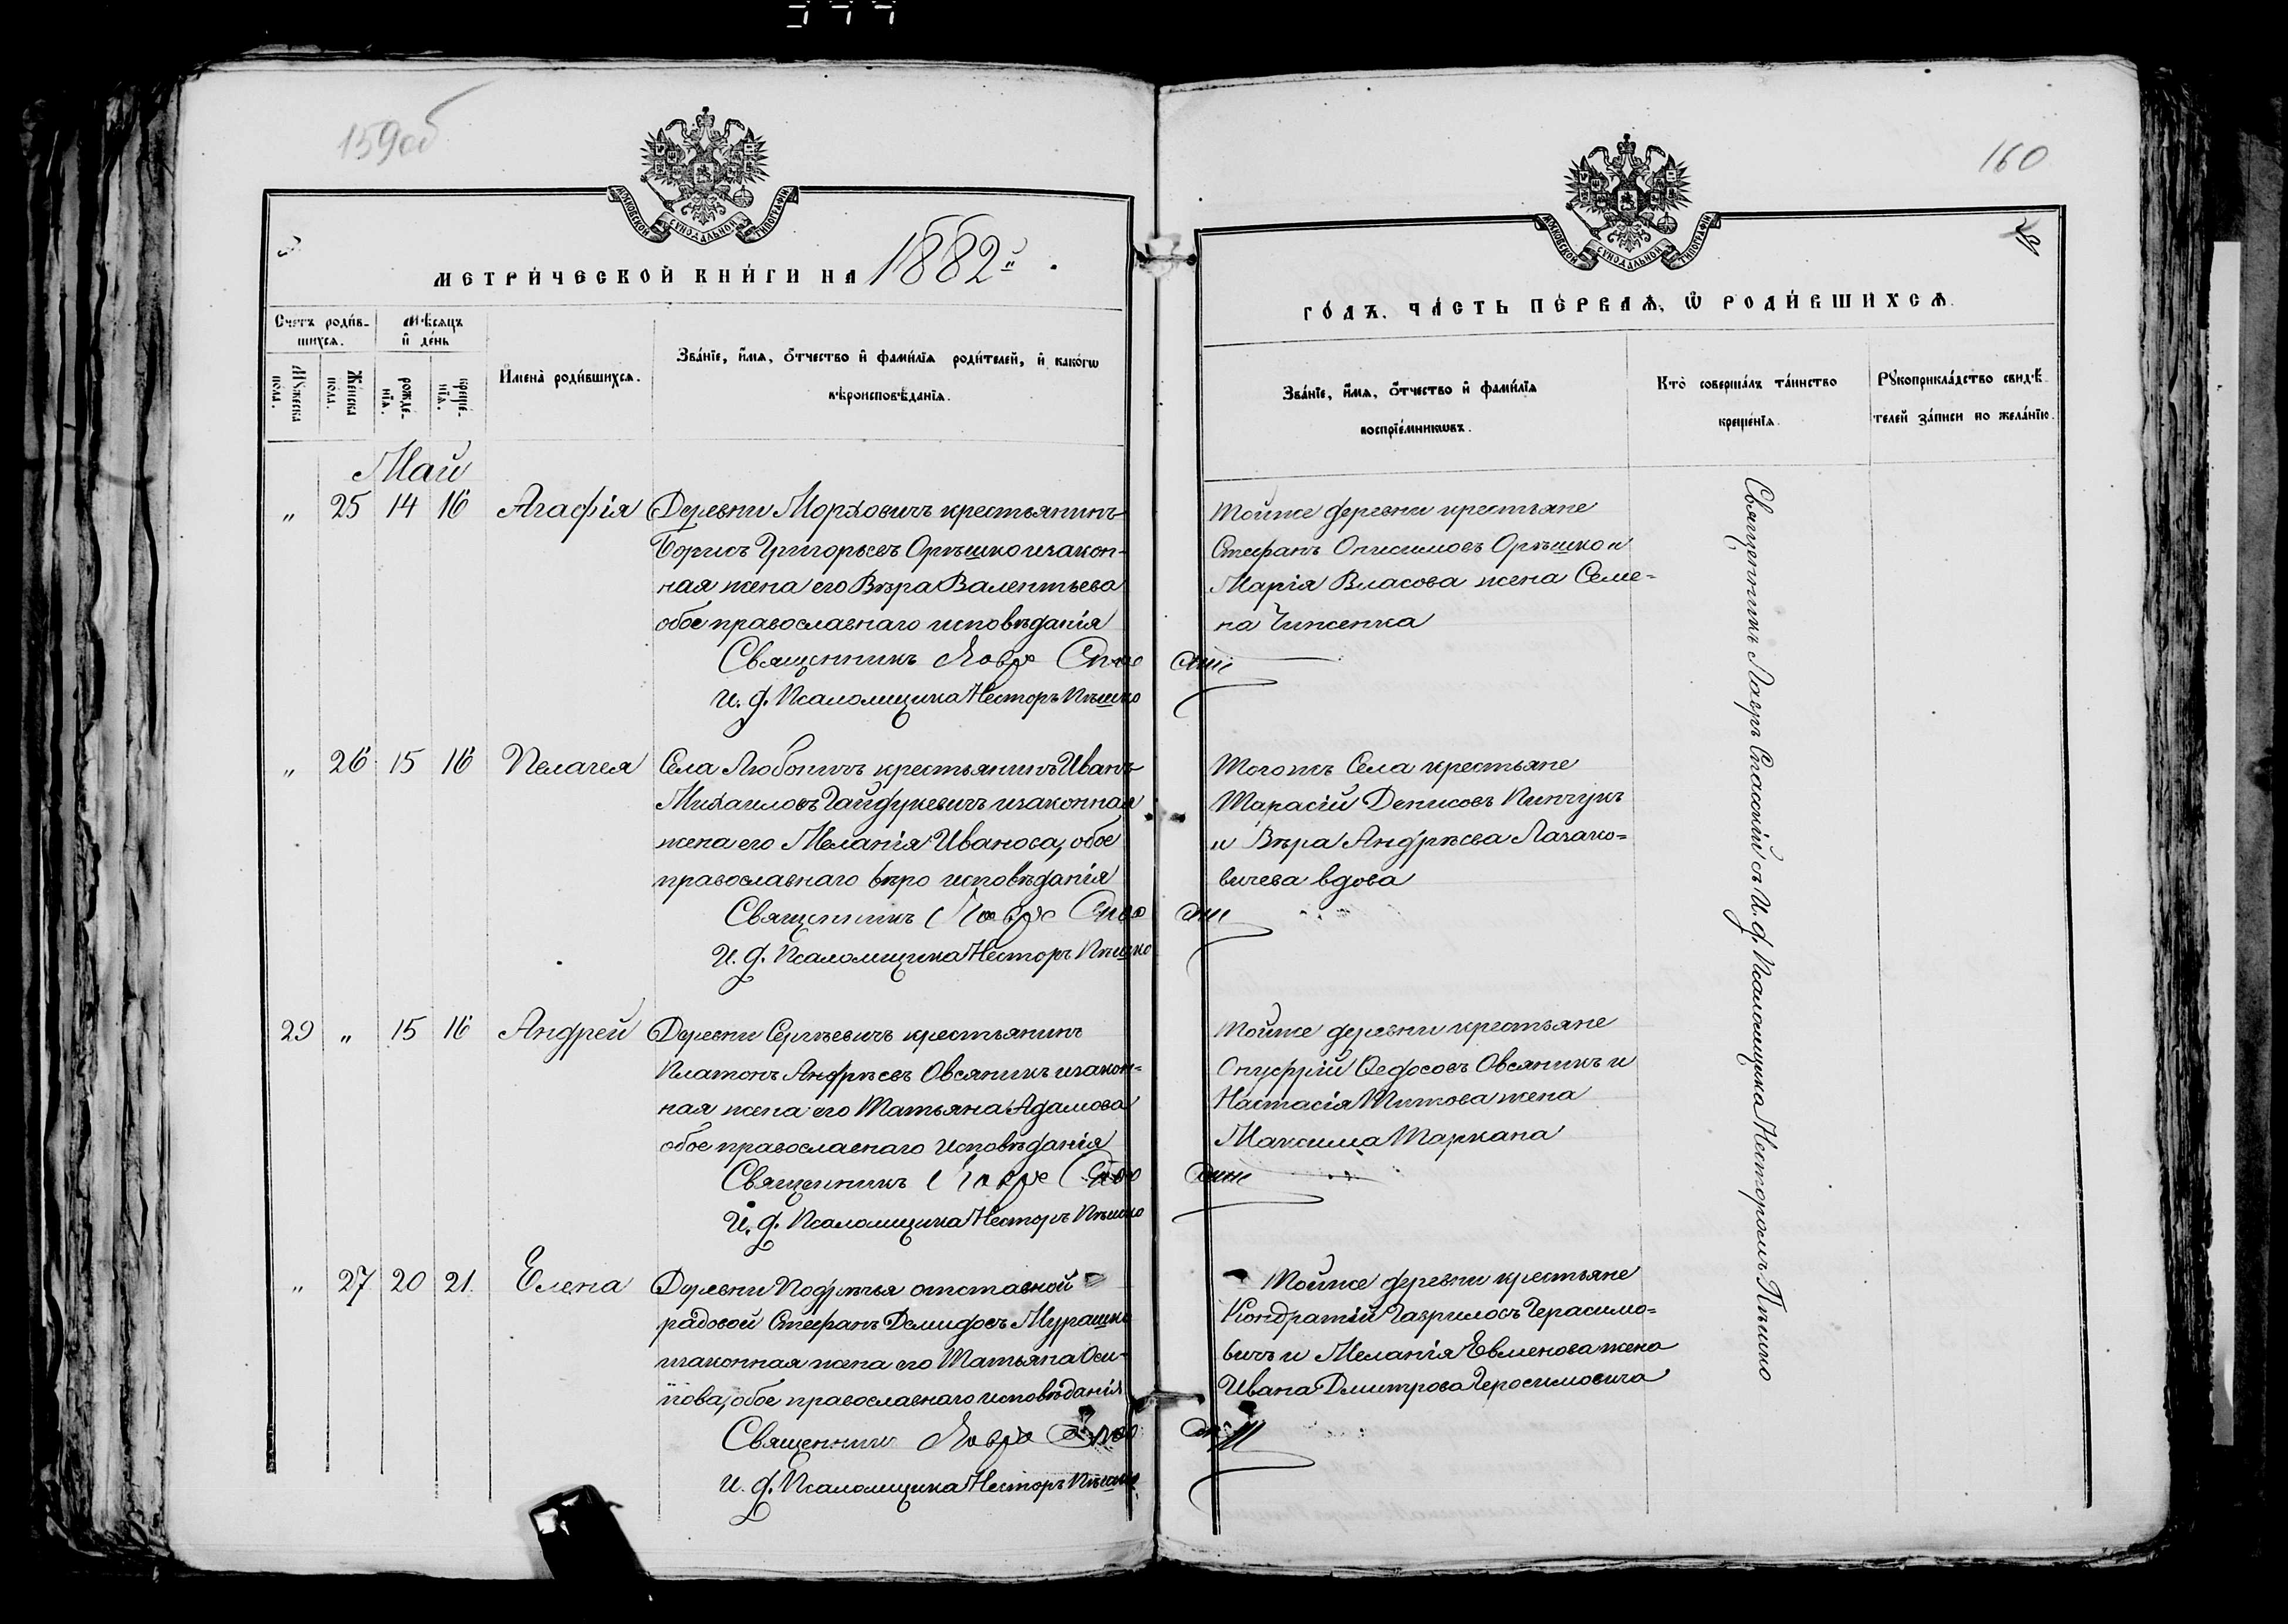 159об
МОСКОВСКОЙ СѴНОДАЛЬНОЙ ТИПОГРАФІИ
МЕТРИ́ЧЕСКОЙ КНИ́ГИ НА 1882
Счетъ роди́вшихсѧ.
Мѣ́сѧцъ и҆ де́нь
И҆мена̀ роди́вшихсѧ.
Зва́нїе, и҆́мѧ, ѻ҆́тчество и҆ фами́лїѧ роди́телей, и҆ како́гѡ
вѣроисповѣ́данїѧ.
Мꙋжеска пола.
Же́нска пола.
рожде́нїѧ.
креще́нїѧ.
Май
„ 25 14 16 Агафія Деревни Морховичъ крестьянинъ
Борисъ Григорьевъ Орѣшко изакон-
ная жена его Вѣра Валентьева
обое православнаго исповѣданія
Священникъ Лавръ Спасскій
И. д. Псаломщика Несторъ Пѣшко
„ 26 15 16 Пелагея Села Любоничъ крестьянинъ Иванъ
Михаиловъ Гайдукевичъ изаконная
жена его Меланія Иванова, обое
православнаго вѣро исповѣданія
Священникъ Лавръ Спасскій
И. д. Псаломщика Несторъ Пѣшко
29 „ 15 16 Андрей Деревни Сергѣевичъ крестьянинъ
Платонъ Андрѣевъ Овсяникъ изакон-
ная жена его Татьяна Адамова
обое православнаго исповѣданія
Священникъ Лавръ Спасскій
И. д. Псаломщика Несторъ Пѣшко
„ 27 20 21 Елена Деревни Подрѣчья отставной
рядовой Стефанъ Демидовъ Мурашко
изаконная жена его Татьяна Оси-
пова, обое православнаго исповѣданія
Священникъ Лавръ Спасскій
И. д. Псаломщика Несторъ Пѣшко
160
МОСКОВСКОЙ СѴНОДАЛЬНОЙ ТИПОГРАФІИ
ГО́ДЪ, ЧА́СТЬ ПЕ́РВАѦ, Ѡ҆ РОДИ́ВШИХСѦ.
Зва́нїе, и҆́мѧ, ѻ҆́тчество и҆ фами́лїѧ
воспрїе́мникѡвъ.
Кто̀ соверша́лъ та́инство
креще́нїѧ.
Рꙋкоприкла́дство свидѣ́телей за́писи по жела́нїю.
Тойже деревни крестьяне
Стефанъ Онисимовъ Орѣшко и
Марія Власова жена Семе-
на Чиженка
Тогожъ Села крестьяне
Тарасій Денисовъ Пинчукъ
и Вѣра Андрѣева Лазако-
вичева вдова
Тойже деревни крестьяне
Онуфрій Федосовъ Овсяникъ и
Настасія Титова жена
Максима Таркана
Тойже деревни крестьяне
Кондратій Гавриловъ Герасимо-
вичъ и Меланія Евменова жена
Ивана Дмитрова Геросимовича
Священникъ Лавръ Спасскій съ И. д. Псаломщика Несторомъ Пѣшко